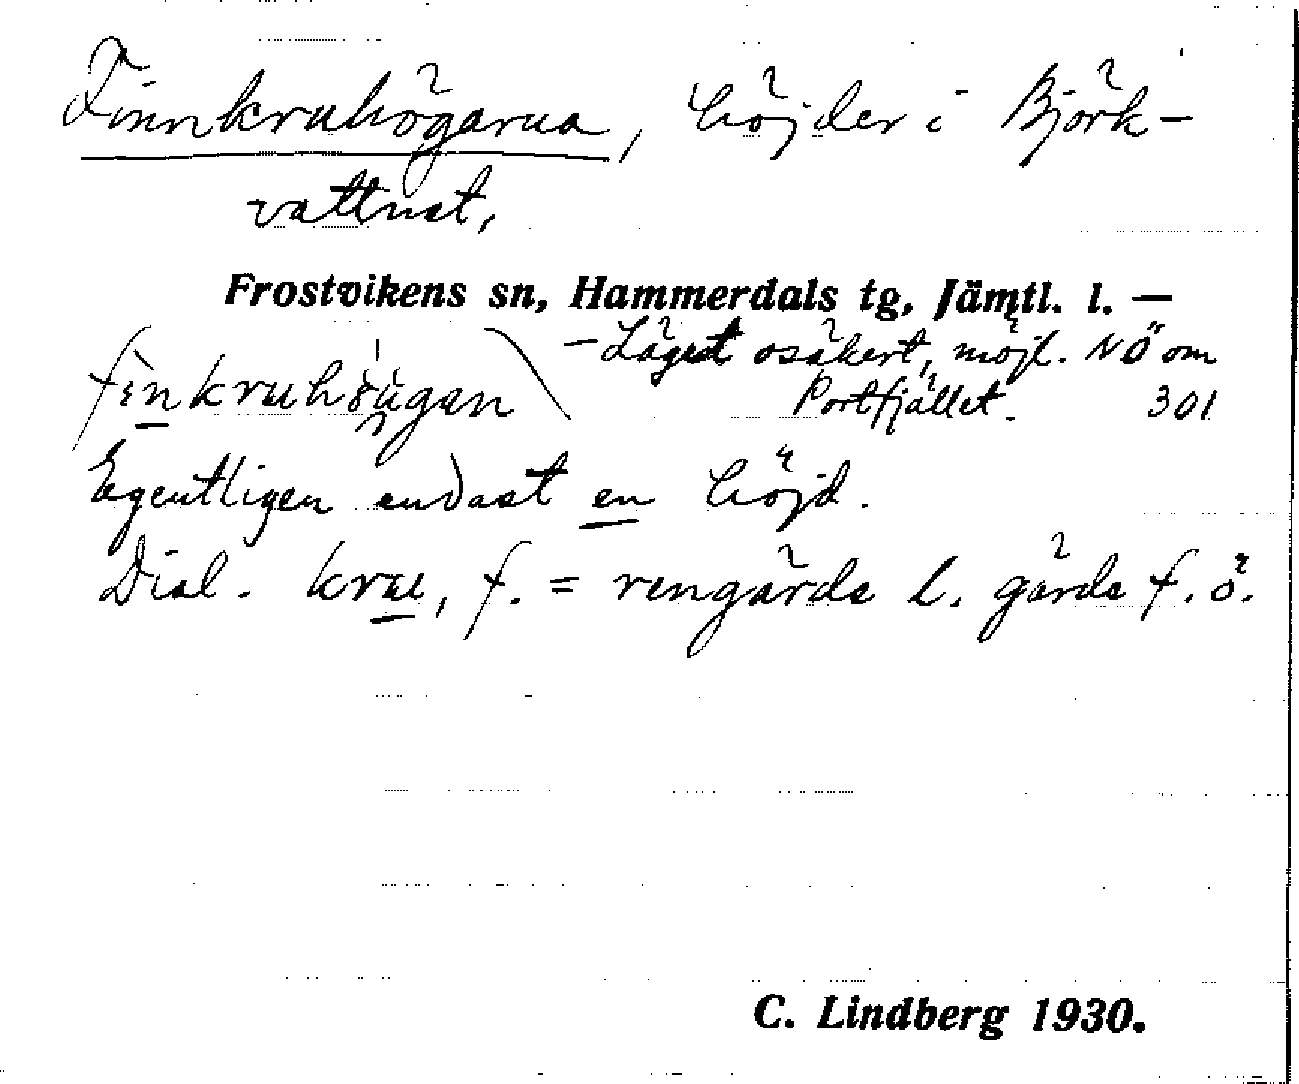 Finnkruhögarna, höjder i Björk-
vattnet,
Frostvikens sn, Hammerdals tg, Jämtl. l. —
– Läget osäkert, möjl. NÖ om
Portfjället. 301
finkruhöugan
Egentligen endast en höjd.
Dial. kru, f. = rengärda l. gärda f. ö.
C. Lindberg 1930.